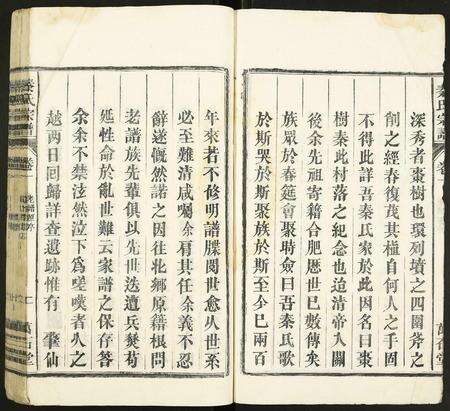 深秀者棗樹也環列墳之四圍斧之
削之經春復茂其植自何人之手固
不得此詳吾秦氏家於此因名曰棗
樹秦此村落之紀念也迨清帝入關
後余先祖寄籍合肥歷世已數傳矣
族眾於春筵會聚時僉曰吾秦氏歌
於斯哭於斯聚族於斯至今已兩百
年來若不修明譜牒閱世愈久世系
必至難清咸囑余肩其任余義不忍
辭遂慨然諾之因往北鄉原籍根問
老譜族先輩俱以先世迭遭兵燹苟
延性命於亂世難云家譜之保存答
余余不禁泫然泣下為嗟嘆者久之
越兩日回歸詳查遺跡惟有 肇仙
秦氏宗譜
卷
二
萬石堂
秦氏宗譜
卷
萬石堂